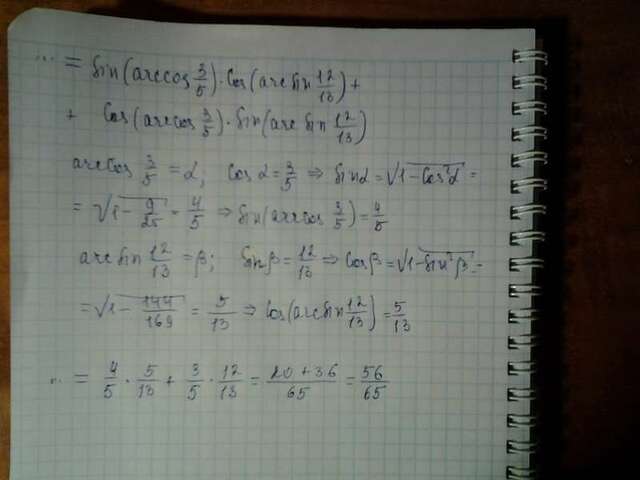 ... = sin(arccos 3/5) · cos(arcsin 12/13) +
+ cos(arccos 3/5) · sin(arcsin 12/13)
arccos 3/5 = α; cos α = 3/5 ⇒ sin α = √(1 - cos²α) =
= √(1 - 9/25) = 4/5 ⇒ sin(arccos 3/5) = 4/5
arcsin 12/13 = β; sin β = 12/13 ⇒ cos β = √(1 - sin²β) =
= √(1 - 144/169) = 5/13 ⇒ cos(arcsin 12/13) = 5/13
... = 4/5 · 5/13 + 3/5 · 12/13 = (20 + 36)/65 = 56/65